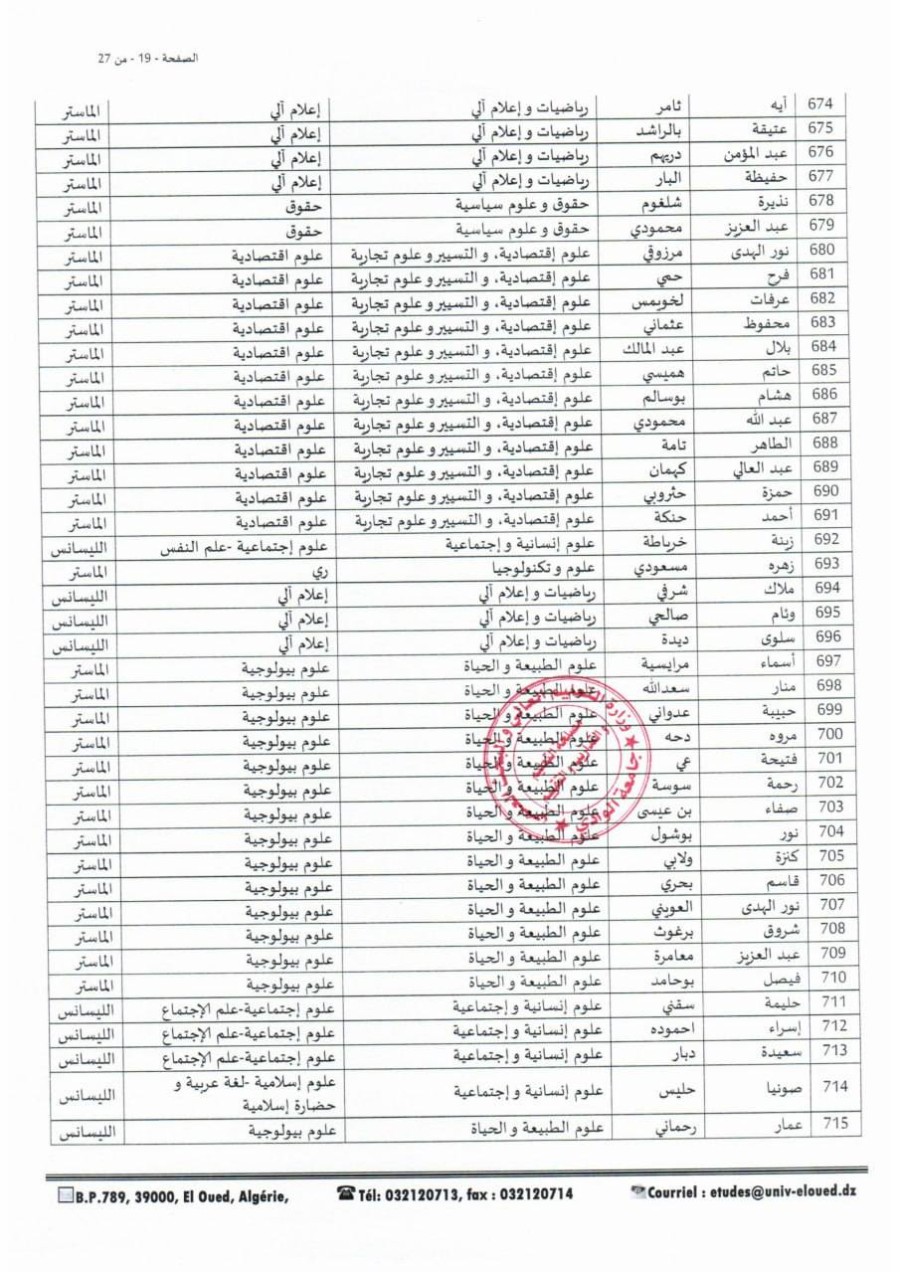 الصفحة - 19 - من 27
674 آيه ثامر رياضيات و إعلام آلي إعلام آلي الماستر
675 عتيقة بالراشد رياضيات و إعلام آلي إعلام آلي الماستر
676 عبد المؤمن دريهم رياضيات و إعلام آلي إعلام آلي الماستر
677 حفيظة البار رياضيات و إعلام آلي إعلام آلي الماستر
678 نذيرة شلغوم حقوق و علوم سياسية حقوق الماستر
679 عبد العزيز محمودي حقوق و علوم سياسية حقوق الماستر
680 نور الهدى مرزوقي علوم إقتصادية، و التسيير و علوم تجارية علوم اقتصادية الماستر
681 فرح حمي علوم إقتصادية، و التسيير و علوم تجارية علوم اقتصادية الماستر
682 عرفات لخويمس علوم إقتصادية، و التسيير و علوم تجارية علوم اقتصادية الماستر
683 محفوظ عثماني علوم إقتصادية، و التسيير و علوم تجارية علوم اقتصادية الماستر
684 بلال عبد المالك علوم إقتصادية، و التسيير و علوم تجارية علوم اقتصادية الماستر
685 حاتم هميسي علوم إقتصادية، و التسيير و علوم تجارية علوم اقتصادية الماستر
686 هشام بوسالم علوم إقتصادية، و التسيير و علوم تجارية علوم اقتصادية الماستر
687 عبد الله محمودي علوم إقتصادية، و التسيير و علوم تجارية علوم اقتصادية الماستر
688 الطاهر تامة علوم إقتصادية، و التسيير و علوم تجارية علوم اقتصادية الماستر
689 عبد العالي كهمان علوم إقتصادية، و التسيير و علوم تجارية علوم اقتصادية الماستر
690 حمزة حثروبي علوم إقتصادية، و التسيير و علوم تجارية علوم اقتصادية الماستر
691 أحمد حنكة علوم إقتصادية، و التسيير و علوم تجارية علوم اقتصادية الماستر
692 زينة خرباطة علوم إنسانية و إجتماعية علوم إجتماعية -علم النفس الليسانس
693 زهره مسعودي علوم و تكنولوجيا ري الماستر
694 ملاك شرفي رياضيات و إعلام آلي إعلام آلي الليسانس
695 وئام صالحي رياضيات و إعلام آلي إعلام آلي الليسانس
696 سلوى ديدة رياضيات و إعلام آلي إعلام آلي الليسانس
697 أسماء مرايسية علوم الطبيعة و الحياة علوم بيولوجية الماستر
698 منار سعدالله علوم الطبيعة و الحياة علوم بيولوجية الماستر
699 حبيبة عدواني علوم الطبيعة و الحياة علوم بيولوجية الماستر
700 مروه دحه علوم الطبيعة و الحياة علوم بيولوجية الماستر
701 فتيحة عي علوم الطبيعة و الحياة علوم بيولوجية الماستر
702 رحمة سوسة علوم الطبيعة و الحياة علوم بيولوجية الماستر
703 صفاء بن عيسى علوم الطبيعة و الحياة علوم بيولوجية الماستر
704 نور بوشول علوم الطبيعة و الحياة علوم بيولوجية الماستر
705 كنزة ولابي علوم الطبيعة و الحياة علوم بيولوجية الماستر
706 قاسم بحري علوم الطبيعة و الحياة علوم بيولوجية الماستر
707 نور الهدى العويني علوم الطبيعة و الحياة علوم بيولوجية الماستر
708 شروق برغوث علوم الطبيعة و الحياة علوم بيولوجية الماستر
709 عبد العزيز معامرة علوم الطبيعة و الحياة علوم بيولوجية الماستر
710 فيصل بوحامد علوم الطبيعة و الحياة علوم بيولوجية الماستر
711 حليمة سقني علوم إنسانية و إجتماعية علوم إجتماعية-علم الإجتماع الليسانس
712 إسراء احموده علوم إنسانية و إجتماعية علوم إجتماعية-علم الإجتماع الليسانس
713 سعيدة دبار علوم إنسانية و إجتماعية علوم إجتماعية-علم الإجتماع الليسانس
714 صونيا حليس علوم إنسانية و إجتماعية علوم إسلامية -لغة عربية و
حضارة إسلامية الليسانس
715 عمار رحماني علوم الطبيعة و الحياة علوم بيولوجية الليسانس
جامعة الوادي
B.P.789, 39000, El Oued, Algérie, Tél: 032120713, fax : 032120714 Courriel : etudes@univ-eloued.dz